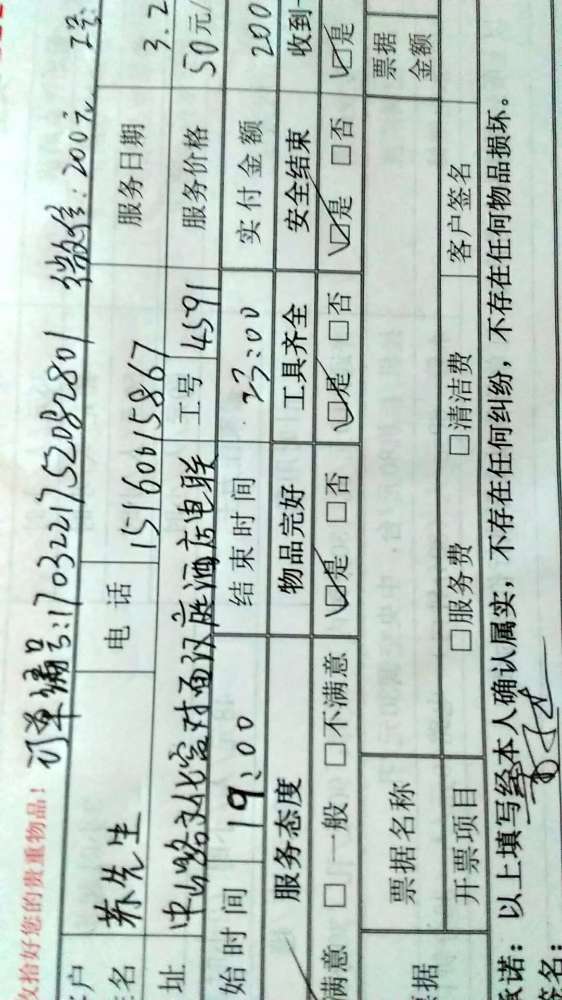 收拾好您的贵重物品!
订单编号:1703221752082801 微信:200元
户 苏先生 电话 15160615867 服务日期 3.2
名
址 中山路文化宫对面汉庭酒店电联 工号 4591 服务价格 50元/
始时间 19:00 结束时间 23:00 实付金额 200
服务态度 物品完好 工具齐全 安全结束 收到
满意 □一般 □不满意 ☑是 □否 ☑是 □否 ☑是 □否 ☑是
据 票据名称 票据金额
开票项目 □服务费 □清洁费 客户签名
承诺:以上填写经本人确认属实,不存在任何纠纷,不存在任何物品损坏。
签名: